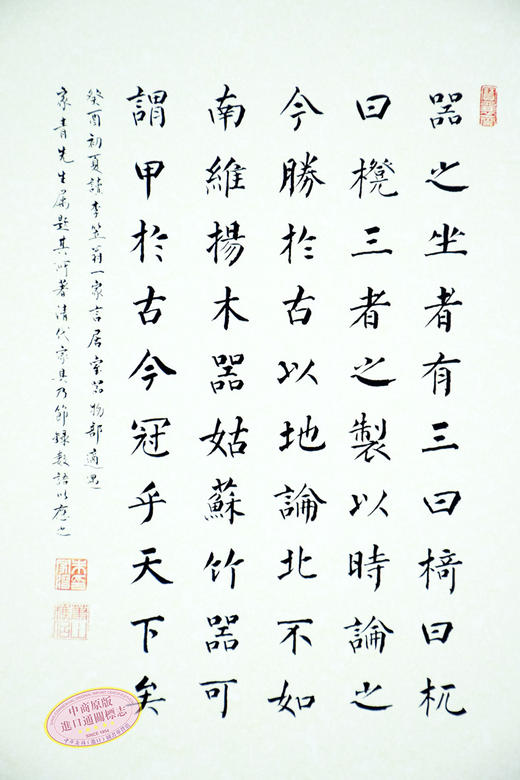 器之坐者有三曰椅曰杌
曰櫈三者之製以時論之
今勝於古以地論北不如
南維揚木器姑蘇竹器可
謂甲於古今冠乎天下矣
癸酉初夏讀李笠翁一家言居室器物部適遇
家青先生屬題其所著清代家具乃節錄數語以應之
中商原版
進口通關標志
SINCE 1954